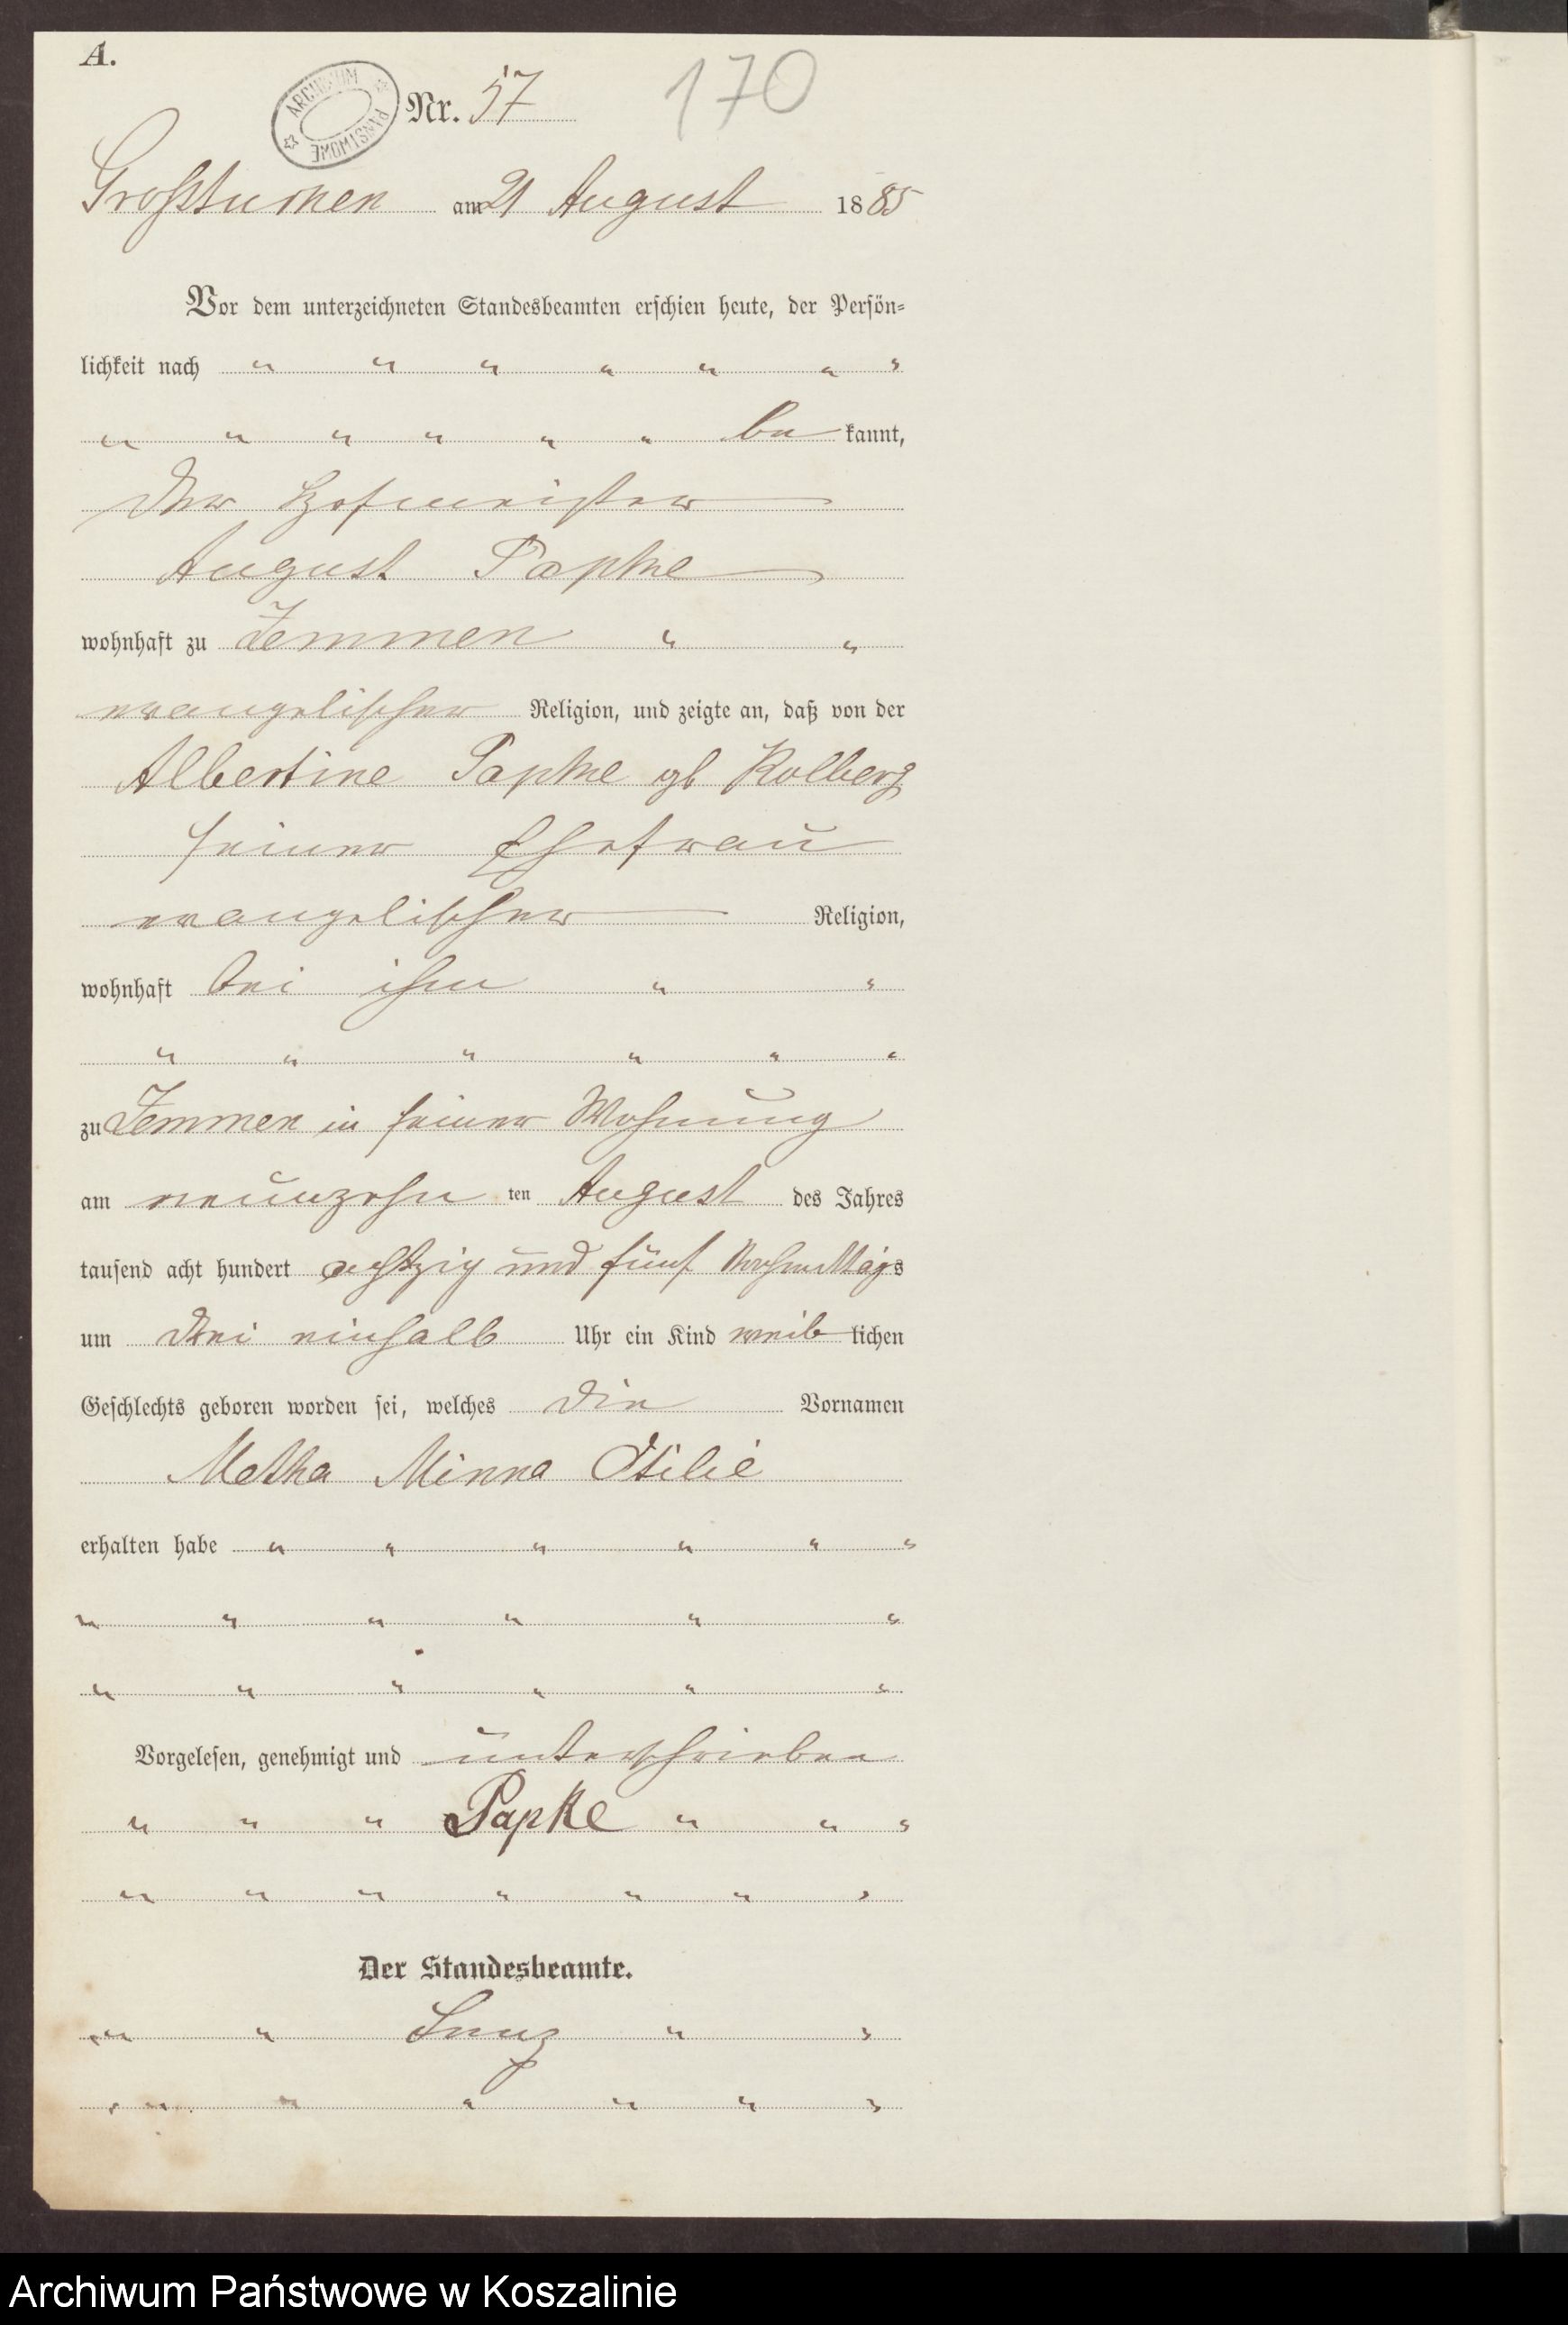 A.
ARCHIWUM PAŃSTWOWE
Nr. 57
170
Großtuchen am 21 August 1885
Vor dem unterzeichneten Standesbeamten erschien heute, der Persön=
lichkeit nach " " " " " " "
" " " " " " be kannt,
der Hofmeister
August Papke
wohnhaft zu Zemmen " "
evangelischer Religion, und zeigte an, daß von der
Albertine Papke gb Kolberg
seiner Ehefrau
evangelischer Religion,
wohnhaft bei ihm " "
" " " " " "
zu Zemmen in seiner Wohnung
am neunzehn ten August des Jahres
tausend acht hundert achtzig und fünf Nachmittags
um drei einhalb Uhr ein Kind weib lichen
Geschlechts geboren worden sei, welches die Vornamen
Metha Minna Otilie
erhalten habe " " " " " "
" " " " " "
" " " " " "
Vorgelesen, genehmigt und unterschrieben
" " " Papke " " "
" " " " " " "
Der Standesbeamte.
" " " "
" " " " " " "
Archiwum Państwowe w Koszalinie